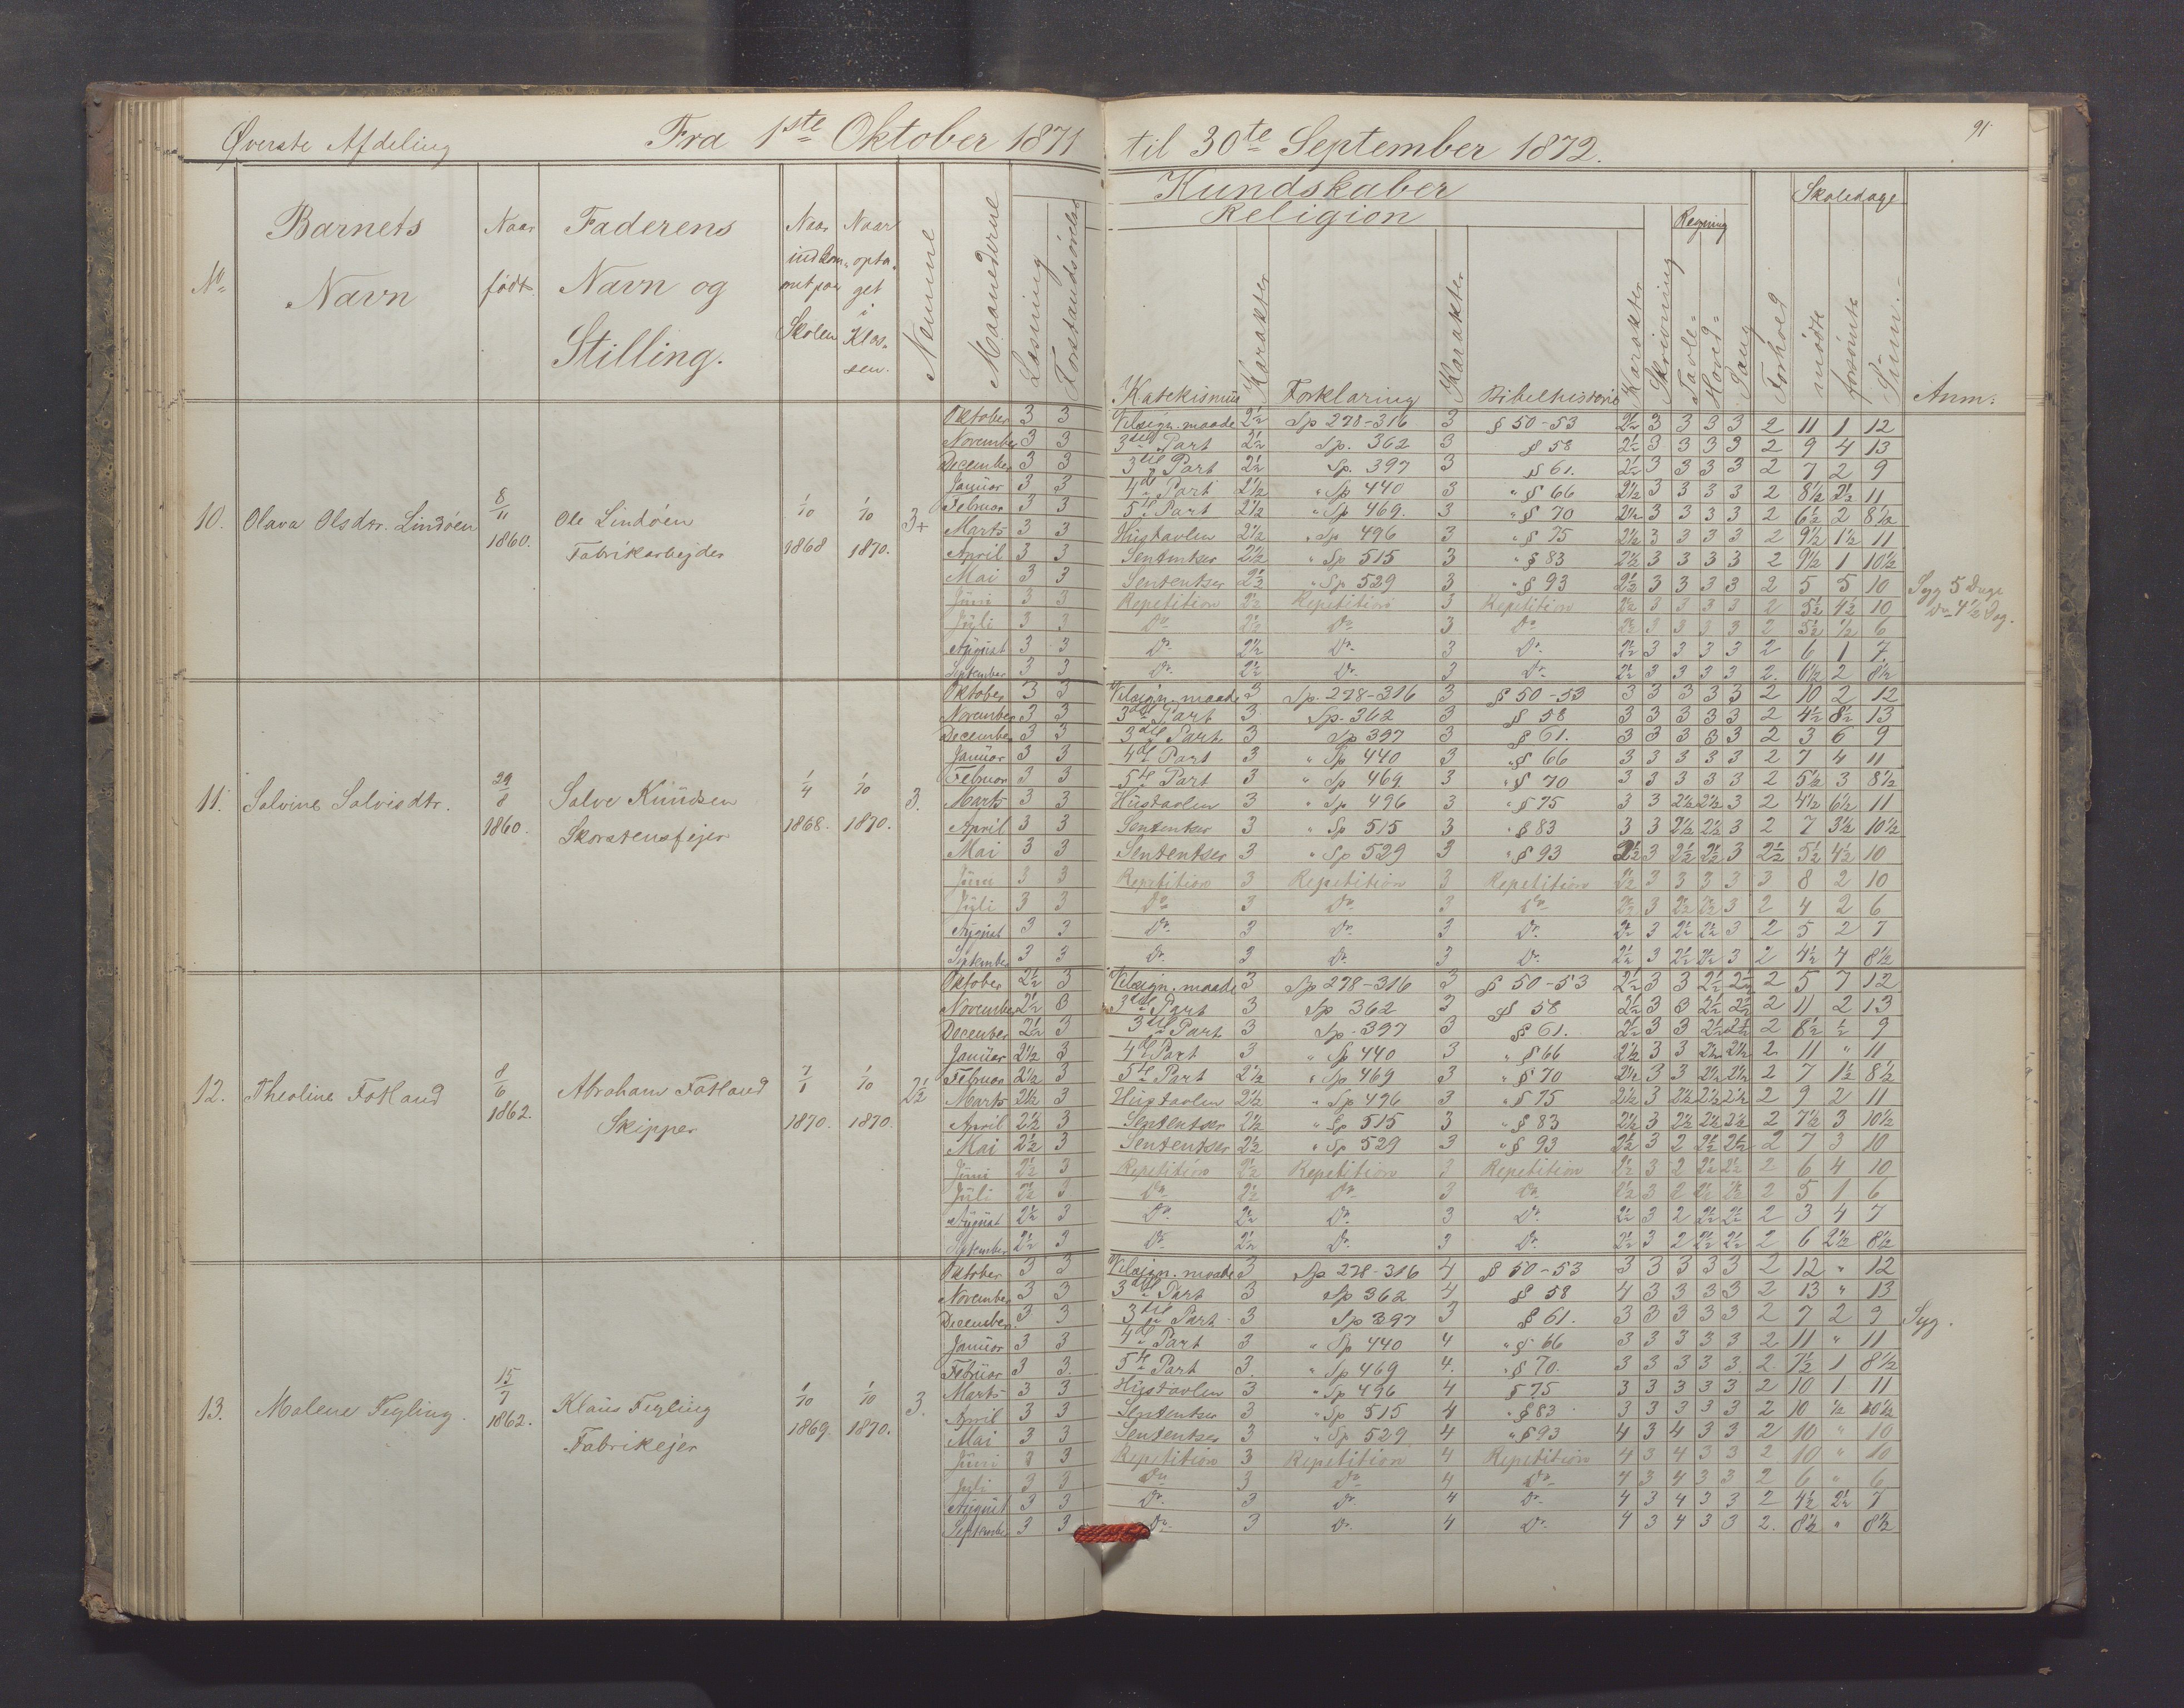 Øverste Afdeling Fra 1ste Oktober 1871 til 30te September 1872. 91
Kundskaber
Religion Regning Skoledage
No Barnets Navn Naar født. Faderens Navn og Stilling. Naar indkommet paa Skolen Naar optaget i Klassen. Nemme Maanederne Læsning Forstandsøvelse Katekismus Karakter Forklaring Karakter Bibelhistorie Karakter Skrivning Tavle- Hoved- Sang Forhold mødte forsømte Sum. Anm:
10. Olava Olsdtr. Lindöen 8/11 1860. Ole Lindöen Fabrikarbejder 1/10 1868 1/10 1870. 3+
Oktober 3 3 Velsign. maade 2½ Sp 278-316 3 § 50-53 2½ 3 3 3 3 2 11 1 12
November 3 3 3die Part 2½ Sp. 362 3 § 58 2½ 3 3 3 3 2 9 4 13
December 3 3 3die Part 2½ Sp. 397 3 § 61. 2½ 3 3 3 3 2 7 2 9
Januar 3 3 4de Part 2½ " Sp 440 3 " § 66 2½ 3 3 3 3 2 8½ 2½ 11
Februar 3 3 5te Part 2½ " Sp 469. 3 " § 70 2½ 3 3 3 3 2 6½ 2 8½
Marts 3 3 Hüstavlen 2½ " Sp 496 3 " § 75 2½ 3 3 3 3 2 9½ 1½ 11
April 3 3 Sententser 2½ " Sp 515 3 " § 83 2½ 3 3 3 3 2 9½ 1 10½
Mai 3 3 Sententser 2½ " Sp 529 3 " § 93 2½ 3 3 3 3 2 5 5 10 Syg 5 Dage
Jüni 3 3 Repetition 2½ Repetition 3 Repetition 2½ 3 3 3 3 2 5½ 4½ 10 Do 4½ Dag.
Jüli 3 3 Do 2½ Do 3 Do 2½ 3 3 3 3 2 5½ ½ 6
August 3 3 Do. 2½ Do. 3 Do. 2½ 3 3 3 3 2 6 1 7.
September 3 3 Do. 2½ Do. 3 Do. 2½ 3 3 3 3 2. 6½ 2 8½
11. Salvine Salvisdtr. 29/8 1860. Salve Knüdsen Skorstensfejer 1/4 1868. 1/10 1870. 3.
Oktober 3 3 Velsign. maade 3 Sp. 278-316 3 § 50-53 3 3 3 3 3 2 10 2 12
November 3 3 3die Part 3 Sp. 362 3 § 58 3 3 3 3 3 2 4½ 8½ 13
December 3 3 3die Part 3 Sp 397 3 § 61. 3 3 3 3 3 2 3 6 9
Januar 3 3 4de Part 3 " Sp 440 3 " § 66 3 3 3 3 3 2 7 4 11
Februar 3 3 5te Part 3 " Sp 469 3 " § 70 3 3 3 3 3 2 5½ 3 8½
Marts 3 3 Hüstavlen 3 " Sp 496 3 " § 75 3 3 2½ 2½ 3 2 4½ 6½ 11
April 3 3 Sententser 3 " Sp 515 3 " § 83 3 3 2½ 2½ 3 2 7 3½ 10½
Mai 3 3 Sententser 3 " Sp 529 3 " § 93 2½ 3 2½ 2½ 3 2½ 5½ 4½ 10
Jüni 3 3 Repetition 3 Repetition 3 Repetition 2½ 3 3 3 3 3 8 2 10
Jüli 3 3 Do 3 Do 3 Do 2½ 3 2½ 2½ 3 2 4 2 6
August 3 3 Do. 3 Do. 3 Do. 2½ 3 2½ 2½ 3 2 5 2 7
September 3 3 Do. 3 Do. 3 Do. 2½ 3 2½ 2½ 3 2 4½ 4 8½
12. Theoline Fotland 8/6 1862. Abraham Fotland Skipper 1870. 1/10 1870. 2½
Oktober 2½ 3 Velsign. maade 3 Sp 278-316 3 § 50-53 2½ 3 3 2½ 2½ 2 5 7 12
November 2½ 3 3die Part 3 Sp 362 3 § 58 2½ 3 3 2½ 2½ 2 11 2 13
December 2½ 3 3die Part 3 Sp. 397 3 § 61. 2½ 3 3 2½ 2½ 2 8½ ½ 9
Januar 2½ 3 4de Part 3 " Sp 440 3 " § 66 2½ 3 3 2½ 2½ 2. 11 " 11
Februar 2½ 3 5te Part 2½ " Sp 469 3 " § 70 2½ 3 3 2½ 2½ 2 7 1½ 8½
Marts 2½ 3 Hüstavlen 2½ " Sp 496 3 " § 75 2½ 3 2½ 2½ 2½ 2 9 2 11
April 2½ 3 Sententser 2½ " Sp 515 3 " § 83 2½ 3 2½ 2½ 2½ 2 7½ 3 10½
Mai 2½ 3 Sententser 2½ " Sp 529 3 " § 93 2½ 3 2 2½ 2½ 2 7 3 10
Jüni 2½ 3 Repetition 2½ Repetition 3 Repetition 2½ 3 2 2½ 2½ 2 6 4 10
Jüli 2½ 3 Do 2½ Do 3 Do 2½ 3 2 2½ 2½ 2 5 1 6
August 2½ 3 Do. 2½ Do. 3 Do. 2½ 3 2 2½ 2½ 2 3 4 7
September 2½ 3 Do. 2½ Do. 3 Do. 2½ 3 2 2½ 2½ 2 6 2½ 8½
13. Malene Fegling. 15/7 1862. Klaus Fegling Fabrikejer 1/10 1869. 1/10 1870. 3.
Oktober 3 3 Velsign. maade 3 Sp 278-316 4 § 50-53 3 3 3 3 3 2 12 " 12
November 3 3 3die Part 3 Sp 362 4 § 58 4 3 3 3 3 2 13 " 13
December 3 3 3die Part 3 Sp 397 3 § 61. 3 3 3 3 3 2 7 2 9 Syg.
Januar 3 3 4de Part 3 " Sp 440 4 " § 66 3 3 3 3 3 2 11 " 11
Februar 3 3. 5te Part 3. " Sp 469 4. " § 70. 3 3 3 3 3 2. 7½ 1 8½
Marts 3 3 Hüstavlen 3 " Sp 496 4 § 75 3 3 3 3 3 2 10 1 11
April 3 3 Sententser 3 " Sp 515 4 " § 83 3 3 3 3 3 2 10 ½ 10½
Mai 3 3 Sententser 3 " Sp 529 4 " § 93 4 3 4 3 3 2 10 " 10
Jüni 3 3 Repetition 3 Repetition 4 Repetition 4 3 4 3 3 2 10 " 10
Jüli 3 3 Do 3 Do 4 Do 4 3 4 3 3 2 6 " 6
August 3 3 Do. 3 Do. 4 Do. 4 3 4 3 3 2 4½ 2½ 7
September 3 3 Do. 3 Do. 4 Do. 4 3 4 3 3 2. 8½ " 8½